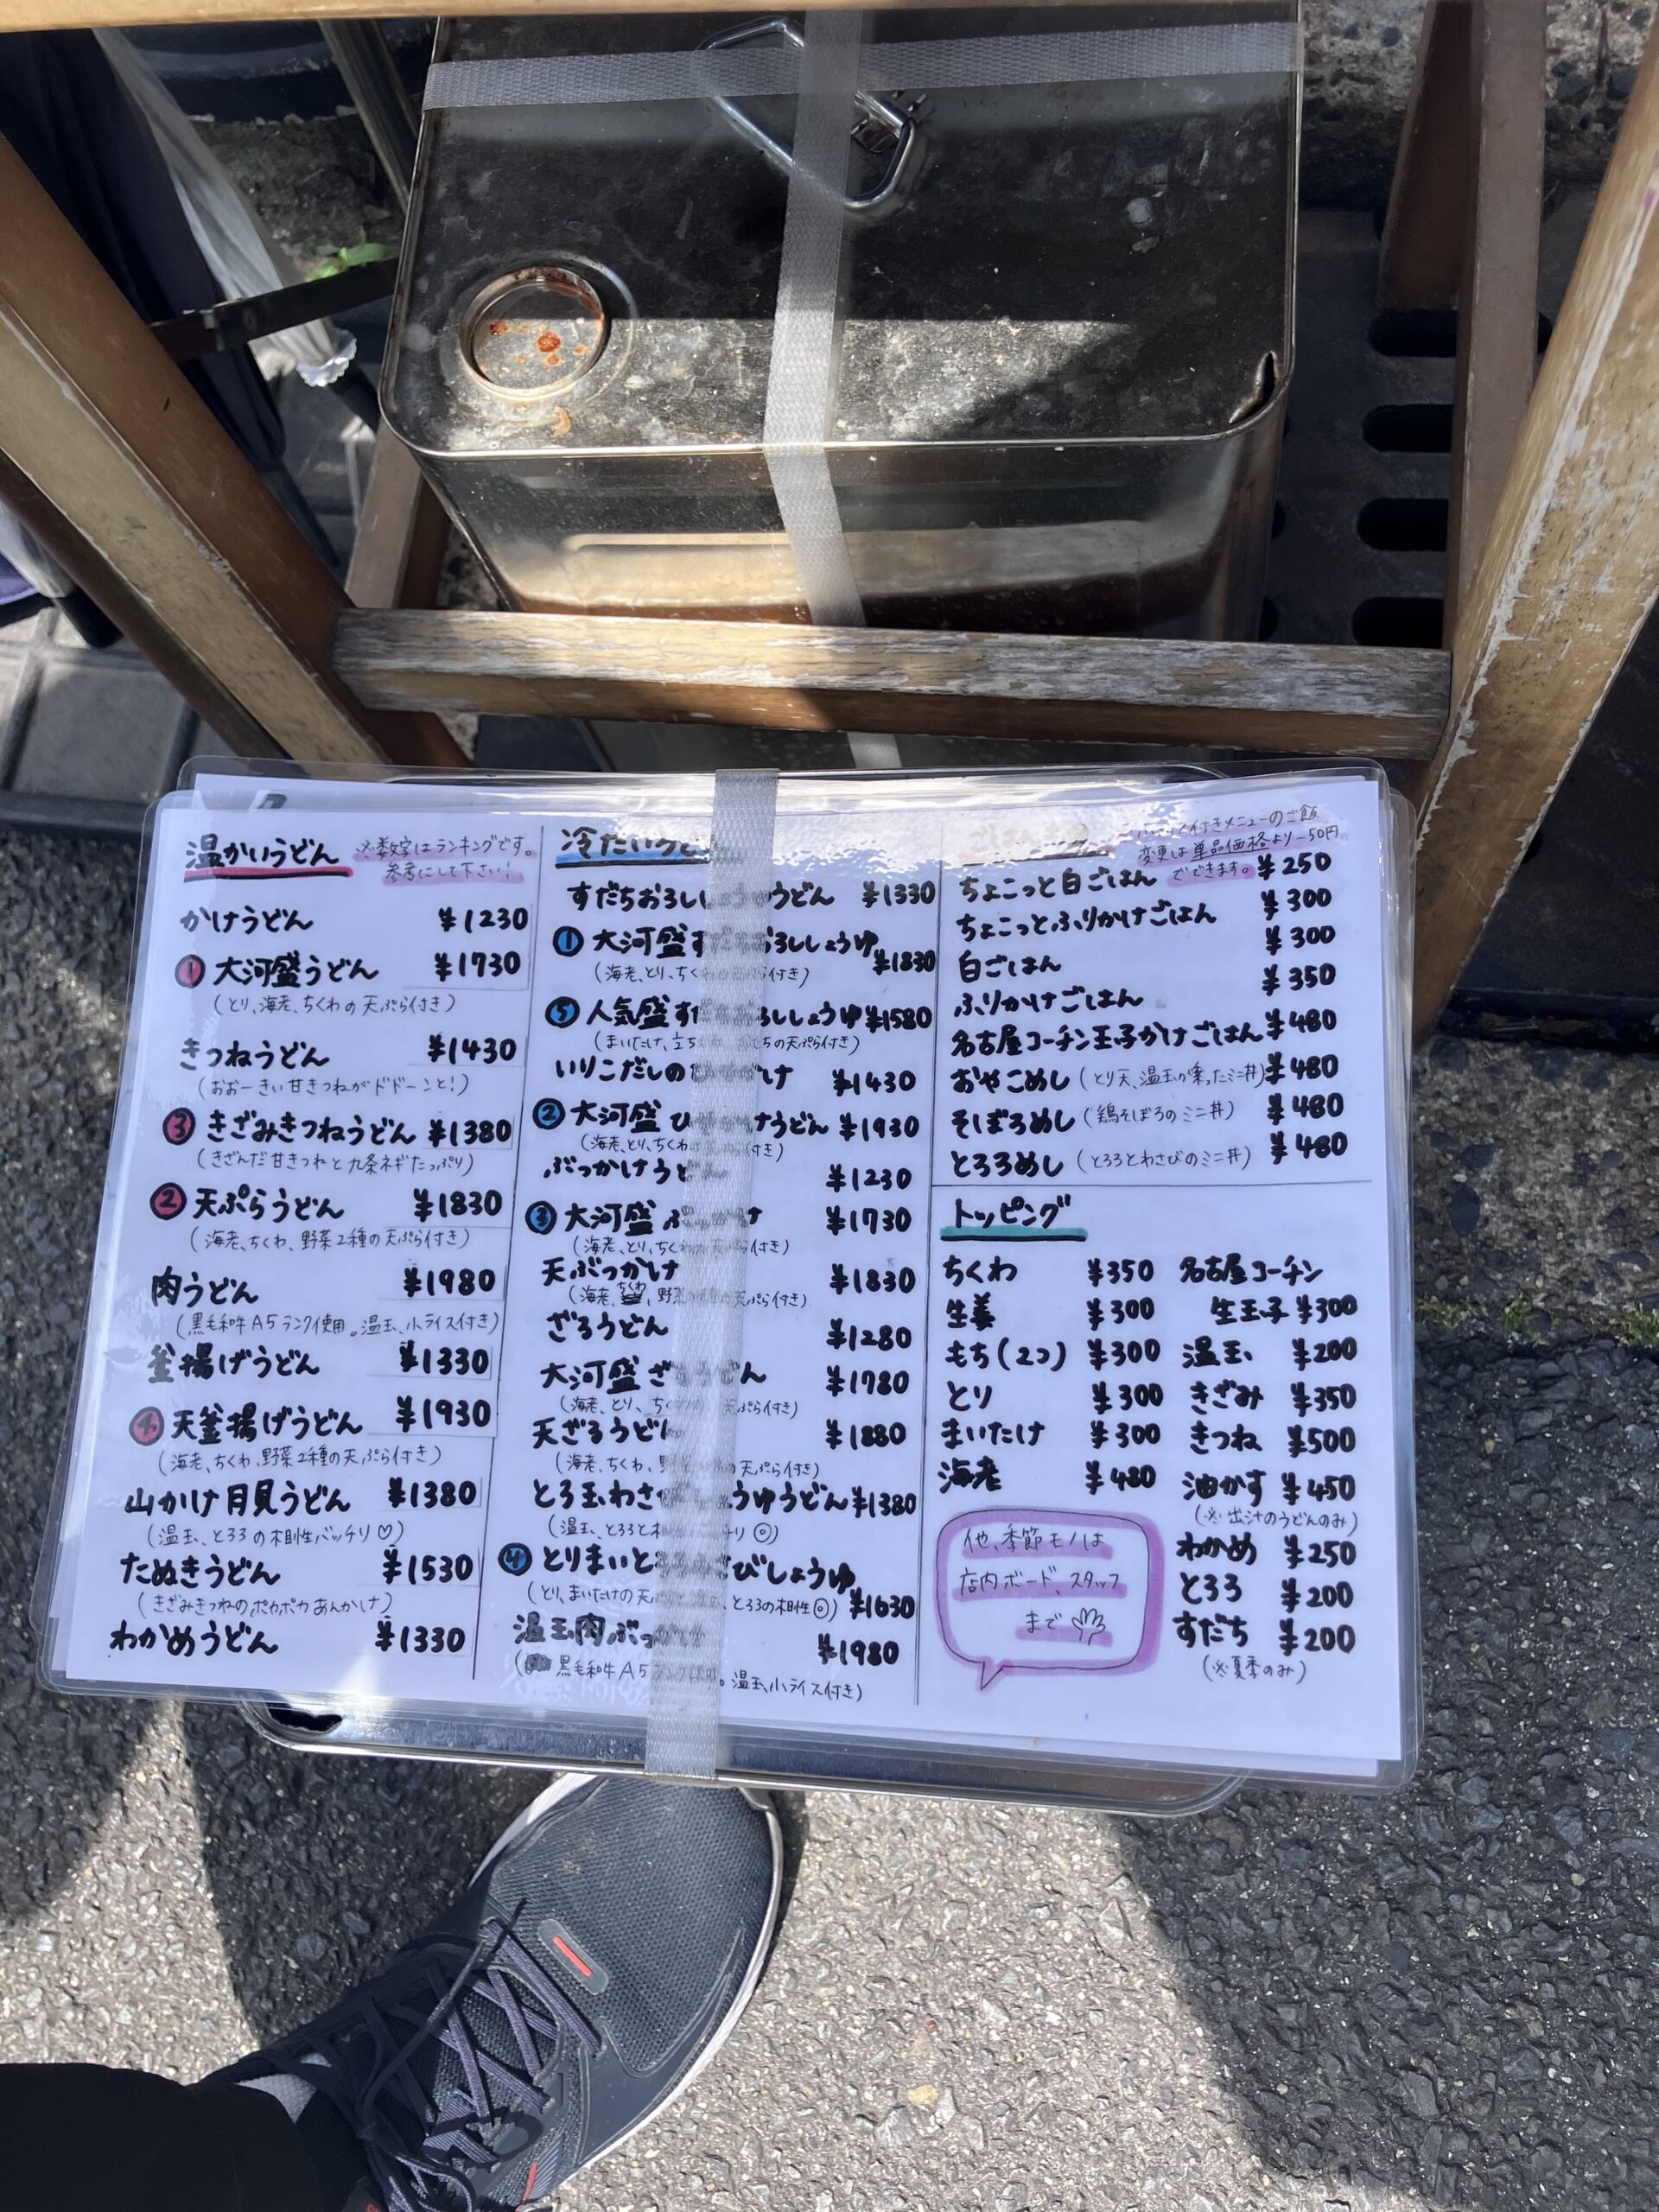 温かいうどん
※数字はランキングです。
参考にして下さい!
かけうどん ¥1230
① 大河盛うどん ¥1730
(とり、海老、ちくわの天ぷら付き)
きつねうどん ¥1430
(おおーきい甘きつねがドドーンと!)
③ きざみきつねうどん ¥1380
(きざんだ甘きつねと九条ネギたっぷり)
② 天ぷらうどん ¥1830
(海老、ちくわ、野菜2種の天ぷら付き)
肉うどん ¥1980
(黒毛和牛A5ランク使用。温玉、小ライス付き)
釜揚げうどん ¥1330
④ 天釜揚げうどん ¥1930
(海老、ちくわ、野菜2種の天ぷら付き)
山かけ月見うどん ¥1380
(温玉、とろろの相性バッチリ♡)
たぬきうどん ¥1530
(きざみきつねのポカポカあんかけ)
わかめうどん ¥1330
冷たいうど
すだちおろし うどん ¥1330
① 大河盛す おろししょうゆ ¥1830
(海老、とり、ちくわ 天ぷら付き)
⑤ 人気盛す ろししょうゆ ¥1580
(まいたけ、立ち ちの天ぷら付き)
いりこだしの け ¥1430
② 大河盛 ひ けうどん ¥1930
(海老、とり、ちくわ 付き)
ぶっかけうど ¥1230
③ 大河盛 ぶ け ¥1730
(海老、とり、ちくわ 天ぷら付き)
天ぶっかけ ¥1830
(海老、ちくわ、野菜 天ぷら付き)
ざるうどん ¥1280
大河盛 ざ どん ¥1780
(海老、とり、ち 天ぷら付き)
天ざるうどん ¥1880
(海老、ちくわ、野 の天ぷら付き)
とろ玉わさ うゆうどん ¥1380
(温玉、とろろと チリ◎)
④ とりまいと びしょうゆ
(とり、まいたけの天 、とろろの相性◎) ¥1630
温玉肉ぶっ ¥1980
(黒毛和牛A5 。温玉、小ライス付き)
付きメニューのご飯
変更は単品価格より-50円
でできます。
ちょこっと白ごはん ¥250
ちょこっとふりかけごはん ¥300
白ごはん ¥300
ふりかけごはん ¥350
名古屋コーチン玉子かけごはん ¥480
おやこめし (とり天、温玉が乗ったミニ丼) ¥480
そぼろめし (鶏そぼろのミニ丼) ¥480
とろろめし (とろろとわさびのミニ丼) ¥480
トッピング
ちくわ ¥350
生姜 ¥300
もち(2コ) ¥300
とり ¥300
まいたけ ¥300
海老 ¥480
名古屋コーチン
生玉子 ¥300
温玉 ¥200
きざみ ¥350
きつね ¥500
油かす ¥450
(※出汁のうどんのみ)
わかめ ¥250
とろろ ¥200
すだち ¥200
(※夏季のみ)
他、季節モノは
店内ボード、スタッフ
まで